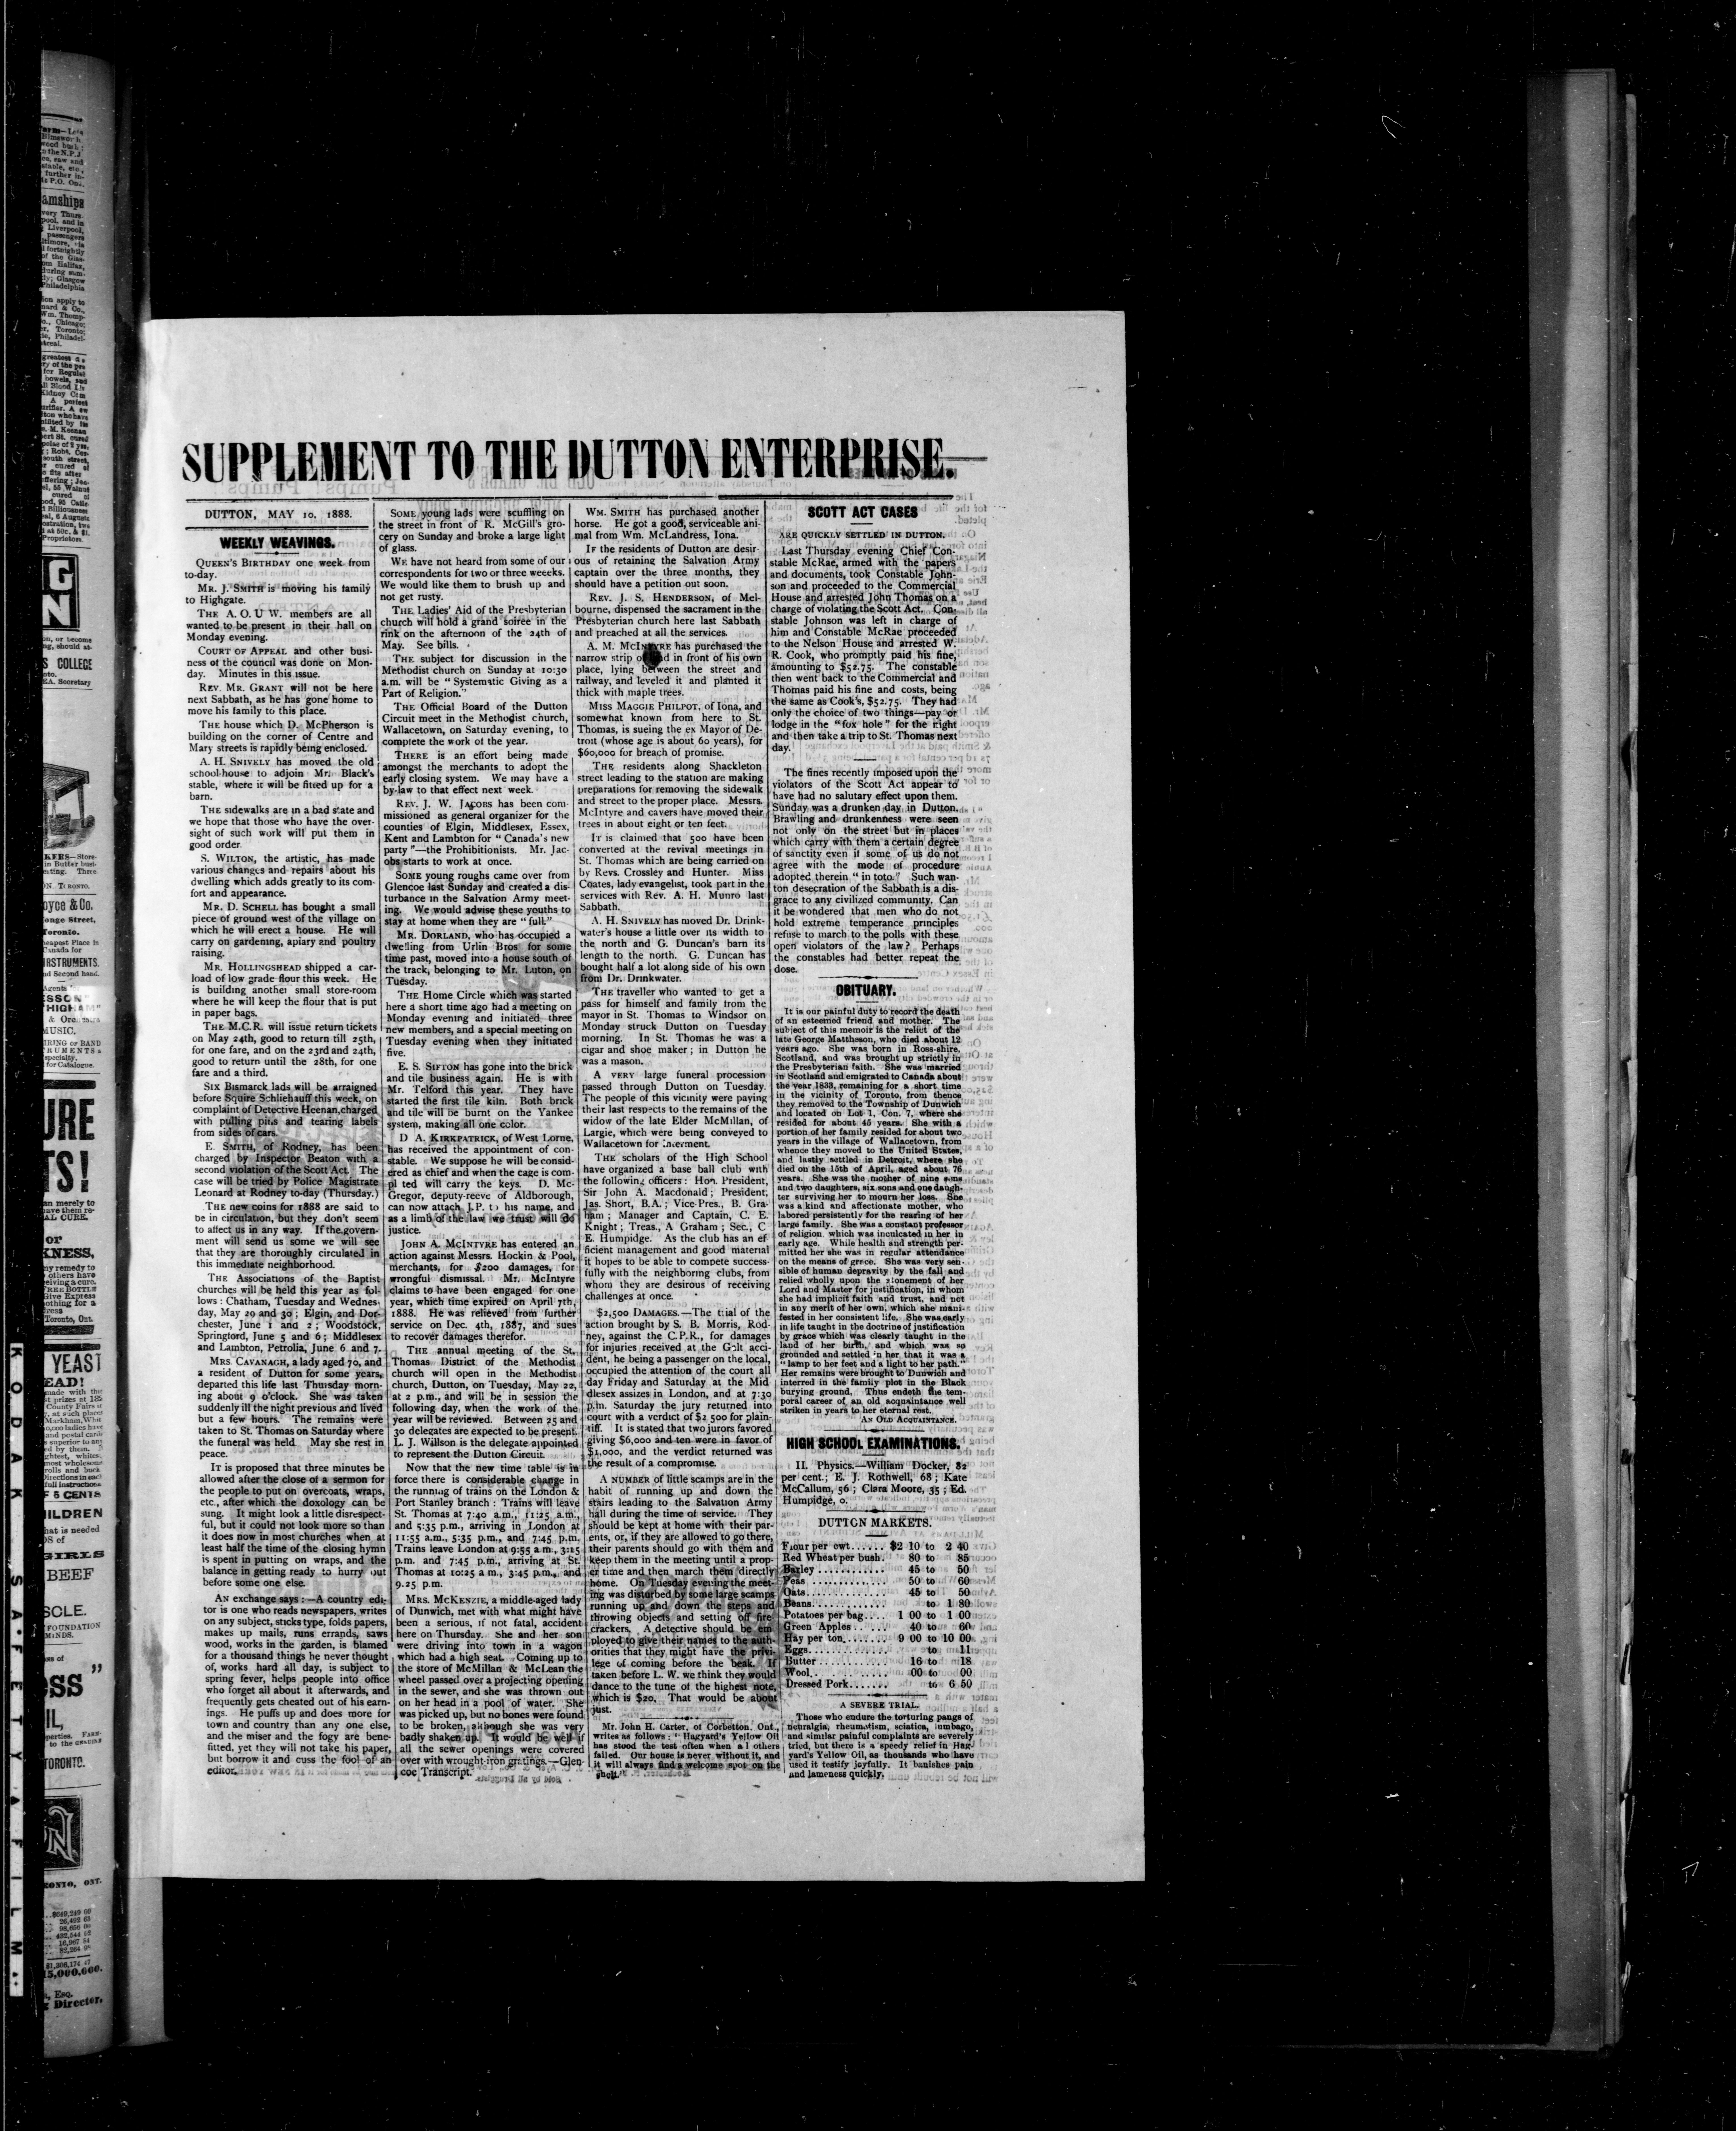 SUPPLEMENT TO THE DUTTON ENTERPRISE.
DUTTON, MAY 10. 1888.
WEEKLY WEAVINGS.
QUEEN'S BIRTHDAY one week from
to-day.
MR. J. SMITH is moving his family
to Highgate.
THE A. O. U W. members are all
wanted to be present in their hall on
Monday evening.
COURT OF APPEAL and other busi-
ness of the council was done on Mon-
day. Minutes in this issue.
REV. MR. GRANT will not be here
next Sabbath, as he has gone home to
move his family to this place.
THE house which D. McPherson is
building on the corner of Centre and
Mary streets is rapidly being enclosed.
A. H. SNIVELY has moved the old
school-house to adjoin Mr. Black's
stable, where it will be fitted up for a
barn.
THE sidewalks are in a bad state and
we hope that those who have the over-
sight of such work will put them in
good order.
S. WILTON, the artistic, has made
various changes and repairs about his
dwelling which adds greatly to its com-
fort and appearance.
MR. D. SCHELL has bought a small
piece of ground west of the village on
which he will erect a house. He will
carry on gardening, apiary and poultry
raising.
MR. HOLLINGSHEAD shipped a car-
load of low grade flour this week. He
is building another small store-room
where he will keep the flour that is put
in paper bags.
THE M.C.R. will issue return tickets
on May 24th, good to return till 25th,
for one fare, and on the 23rd and 24th,
good to return until the 28th, for one
fare and a third.
SIX Bismarck lads will be arraigned
before Squire Schliehauff this week, on
complaint of Detective Heenan, charged
with pulling pins and tearing labels
from sides of cars.
E. SMITH, of Rodney, has been
charged by Inspector Beaton with a
second violation of the Scott Act. The
case will be tried by Police Magistrate
Leonard at Rodney to-day (Thursday.)
THE new coins for 1888 are said to
be in circulation, but they don't seem
to affect us in any way. If the govern-
ment will send us some we will see
that they are thoroughly circulated in
this immediate neighborhood.
THE Associations of the Baptist
churches will be held this year as fol-
lows: Chatham, Tuesday and Wednes-
day, May 29 and 30; Elgin, and Dor-
chester, June 1 and 2; Woodstock,
Springford, June 5 and 6; Middlesex
and Lambton, Petrolia, June 6 and 7.
MRS. CAVANAGH, a lady aged 70, and
a resident of Dutton for some years,
departed this life last Thursday morn-
ing about 9 o'clock. She was taken
suddenly ill the night previous and lived
but a few hours. The remains were
taken to St. Thomas on Saturday where
the funeral was held. May she rest in
peace.
IT is proposed that three minutes be
allowed after the close of a sermon for
the people to put on overcoats, wraps,
etc., after which the doxology can be
sung. It might look a little disrespect-
ful, but it could not look more so than
it does now in most churches when at
least half the time of the closing hymn
is spent in putting on wraps, and the
balance in getting ready to hurry out
before some one else.
AN exchange says:—A country edi-
tor is one who reads newspapers, writes
on any subject, sticks type, folds papers,
makes up mails, runs errands, saws
wood, works in the garden, is blamed
for a thousand things he never thought
of, works hard all day, is subject to
spring fever, helps people into office
who forget all about it afterwards, and
frequently gets cheated out of his earn-
ings. He puffs up and does more for
town and country than any one else,
and the miser and the fogy are bene-
fitted, yet they will not take his paper,
but borrow it and cuss the fool of an
editor.
SOME young lads were scuffling on
the street in front of R. McGill's gro-
cery on Sunday and broke a large light
of glass.
WE have not heard from some of our
correspondents for two or three weeks.
We would like them to brush up and
not get rusty.
THE Ladies' Aid of the Presbyterian
church will hold a grand soiree in the
rink on the afternoon of the 24th of
May. See bills.
THE subject for discussion in the
Methodist church on Sunday at 10:30
a.m. will be "Systematic Giving as a
Part of Religion."
THE Official Board of the Dutton
Circuit meet in the Methodist church,
Wallacetown, on Saturday evening, to
complete the work of the year.
THERE is an effort being made
amongst the merchants to adopt the
early closing system. We may have a
by-law to that effect next week.
REV. J. W. JACOBS has been com-
missioned as general organizer for the
counties of Elgin, Middlesex, Essex,
Kent and Lambton for "Canada's new
party"—the Prohibitionists. Mr. Jac-
obs starts to work at once.
SOME young roughs came over from
Glencoe last Sunday and created a dis-
turbance in the Salvation Army meet-
ing. We would advise these youths to
stay at home when they are "full."
MR. DORLAND, who has occupied a
dwelling from Urlin Bros for some
time past, moved into a house south of
the track, belonging to Mr. Luton, on
Tuesday.
THE Home Circle which was started
here a short time ago had a meeting on
Monday evening and initiated three
new members, and a special meeting on
Tuesday evening when they initiated
five.
E. S. SIFTON has gone into the brick
and tile business again. He is with
Mr. Telford this year. They have
started the first tile kiln. Both brick
and tile will be burnt on the Yankee
system, making all one color.
D A. KIRKPATRICK, of West Lorne,
has received the appointment of con-
stable. We suppose he will be consid-
ered as chief and when the cage is com-
pl ted will carry the keys. D. Mc-
Gregor, deputy-reeve of Aldborough,
can now attach J.P. to his name, and
as a limb of the law we trust will do
justice.
JOHN A. MCINTYRE has entered an
action against Messrs. Hockin & Pool,
merchants, for $200 damages, for
wrongful dismissal. Mr. McIntyre
claims to have been engaged for one
year, which time expired on April 7th,
1888. He was relieved from further
service on Dec. 4th, 1887, and sues
to recover damages therefor.
THE annual meeting of the St.
Thomas District of the Methodist
church will open in the Methodist
church, Dutton, on Tuesday, May 22,
at 2 p.m., and will be in session the
following day, when the work of the
year will be reviewed. Between 25 and
30 delegates are expected to be present.
L. J. Willson is the delegate appointed
to represent the Dutton Circuit.
Now that the new time table is in
force there is considerable change in
the running of trains on the London &
Port Stanley branch: Trains will leave
St. Thomas at 7:40 a.m., 11:25 a.m.,
and 5:35 p.m., arriving in London at
11:55 a.m., 5:35 p.m., and 7:45 p.m.
Trains leave London at 9:55 a.m., 3:15
p.m. and 7:45 p.m., arriving at St.
Thomas at 10:25 a.m., 3:45 p.m., and
9.25 p.m.
MRS. MCKENZIE, a middle-aged lady
of Dunwich, met with what might have
been a serious, if not fatal, accident
here on Thursday. She and her son
were driving into town in a wagon
which had a high seat. Coming up to
the store of McMillan & McLean the
wheel passed over a projecting opening
in the sewer, and she was thrown out
on her head in a pool of water. She
was picked up, but no bones were found
to be broken, although she was very
badly shaken up. It would be well if
all the sewer openings were covered
over with wrought-iron gratings.—Glen-
coe Transcript.
WM. SMITH has purchased another
horse. He got a good, serviceable ani-
mal from Wm. McLandress, Iona.
IF the residents of Dutton are desir
ous of retaining the Salvation Army
captain over the three months, they
should have a petition out soon.
REV. J. S. HENDERSON, of Mel-
bourne, dispensed the sacrament in the
Presbyterian church here last Sabbath
and preached at all the services.
A. M. MCINTYRE has purchased the
narrow strip of in front of his own
place, lying between the street and
railway, and leveled it and planted it
thick with maple trees.
MISS MAGGIE PHILPOT, of Iona, and
somewhat known from here to St.
Thomas, is sueing the ex Mayor of De-
troit (whose age is about 60 years), for
$60,000 for breach of promise.
THE residents along Shackleton
street leading to the station are making
preparations for removing the sidewalk
and street to the proper place. Messrs.
McIntyre and cavers have moved their
trees in about eight or ten feet.
IT is claimed that 500 have been
converted at the revival meetings in
St. Thomas which are being carried on
by Revs. Crossley and Hunter. Miss
Coates, lady evangelist, took part in the
services with Rev. A. H. Munro last
Sabbath.
A. H. SNIVELY has moved Dr. Drink-
water's house a little over its width to
the north and G. Duncan's barn its
length to the north. G. Duncan has
bought half a lot along side of his own
from Dr. Drinkwater.
THE traveller who wanted to get a
pass for himself and family from the
mayor in St. Thomas to Windsor on
Monday struck Dutton on Tuesday
morning. In St. Thomas he was a
cigar and shoe maker; in Dutton he
was a mason.
A VERY large funeral procession
passed through Dutton on Tuesday.
The people of this vicinity were paying
their last respects to the remains of the
widow of the late Elder McMillan, of
Largie, which were being conveyed to
Wallacetown for interment.
THE scholars of the High School
have organized a base ball club with
the following officers: Hon. President,
Sir John A. Macdonald; President,
Jas. Short, B.A.; Vice-Pres., B. Gra-
ham; Manager and Captain, C. E.
Knight; Treas., A Graham; Sec., C
E. Humpidge. As the club has an ef
ficient management and good material
it hopes to be able to compete success-
fully with the neighboring clubs, from
whom they are desirous of receiving
challenges at once.
$2,500 DAMAGES.—The trial of the
action brought by S. B. Morris, Rod-
ney, against the C.P.R., for damages
for injuries received at the Galt acci-
dent, he being a passenger on the local,
occupied the attention of the court all
day Friday and Saturday at the Mid
dlesex assizes in London, and at 7:30
p.m. Saturday the jury returned into
court with a verdict of $2 500 for plain-
tiff. It is stated that two jurors favored
giving $6,000 and ten were in favor of
$1,000, and the verdict returned was
the result of a compromise.
A NUMBER of little scamps are in the
habit of running up and down the
stairs leading to the Salvation Army
hall during the time of service. They
should be kept at home with their par-
ents, or, if they are allowed to go there,
their parents should go with them and
keep them in the meeting until a prop-
er time and then march them directly
home. On Tuesday evening the meet-
ing was disturbed by some large scamps
running up and down the steps and
throwing objects and setting off fire
crackers. A detective should be em
ployed to give their names to the auth-
orities that they might have the privi-
lege of coming before the beak. If
taken before L. W. we think they would
dance to the tune of the highest note,
which is $20. That would be about
just.
Mr. John H. Carter, of Corbetton, Ont.,
writes as follows: "Hagyard's Yellow Oil
has stood the test often when al others
failed. Our house is never without it, and
it will always find a welcome spot on the
shelf."
SCOTT ACT CASES
ARE QUICKLY SETTLED IN DUTTON.
Last Thursday evening Chief Con-
stable McRae, armed with the papers
and documents, took Constable John-
son and proceeded to the Commercial
House and arrested John Thomas on a
charge of violating the Scott Act. Con-
stable Johnson was left in charge of
him and Constable McRae proceeded
to the Nelson House and arrested W.
R. Cook, who promptly paid his fine,
amounting to $52.75. The constable
then went back to the Commercial and
Thomas paid his fine and costs, being
the same as Cook's, $52.75. They had
only the choice of two things—pay or
lodge in the "fox hole" for the night
and then take a trip to St. Thomas next
day.
The fines recently imposed upon the
violators of the Scott Act appear to
have had no salutary effect upon them.
Sunday was a drunken day in Dutton.
Brawling and drunkenness were seen
not only on the street but in places
which carry with them a certain degree
of sanctity even if some of us do not
agree with the mode of procedure
adopted therein "in toto." Such wan-
ton desecration of the Sabbath is a dis-
grace to any civilized community. Can
it be wondered that men who do not
hold extreme temperance principles
refuse to march to the polls with these
open violators of the law? Perhaps
the constables had better repeat the
dose.
OBITUARY.
It is our painful duty to record the death
of an esteemed friend and mother. The
subject of this memoir is the relict of the
late George Mattheson, who died about 12
years ago. She was born in Ross-shire,
Scotland, and was brought up strictly in
the Presbyterian faith. She was married
in Scotland and emigrated to Canada about
the year 1833, remaining for a short time
in the vicinity of Toronto, from thence
they removed to the Township of Dunwich
and located on Lot 1, Con. 7, where she
resided for about 45 years. She with a
portion of her family resided for about two
years in the village of Wallacetown, from
whence they moved to the United States,
and lastly settled in Detroit, where she
died on the 15th of April, aged about 76
years. She was the mother of nine sons
and two daughters, six sons and one daugh-
ter surviving her to mourn her loss. She
was a kind and affectionate mother, who
labored persistently for the rearing of her
large family. She was a constant professor
of religion which was inculcated in her in
early age. While health and strength per-
mitted her she was in regular attendance
on the means of grace. She was very sen-
sible of human depravity by the fall and
relied wholly upon the atonement of her
Lord and Master for justification, in whom
she had implicit faith and trust, and not
in any merit of her own, which she mani-
fested in her consistent life. She was early
in life taught in the doctrine of justification
by grace which was clearly taught in the
land of her birth, and which was so
grounded and settled in her that it was a
"lamp to her feet and a light to her path."
Her remains were brought to Dunwich and
interred in the family plot in the Black
burying ground. Thus endeth the tem-
poral career of an old acquaintance well
striken in years to her eternal rest.
AN OLD ACQUAINTANCE.
HIGH SCHOOL EXAMINATIONS.
II. Physics.—William Docker, 82
per cent.; E. J. Rothwell, 68; Kate
McCallum, 56; Clara Moore, 35; Ed.
Humpidge, 0.
DUTTON MARKETS.
Flour per cwt...... $2 10 to 2 40
Red Wheat per bush. 80 to 85
Barley ............ 45 to 50
Peas .............. 50 to 60
Oats.............. 45 to 50
Beans.............. to 1 80
Potatoes per bag.... 1 00 to 1 00
Green Apples...... 40 to 60
Hay per ton........ 9 00 to 10 00
Eggs.............. to 11
Butter ............ 16 to 18
Wool.............. 00 to 00
Dressed Pork....... to 6 50
A SEVERE TRIAL.
Those who endure the torturing pangs of
neuralgia, rheumatism, sciatica, lumbago,
and similar painful complaints are severely
tried, but there is a speedy relief in Hag-
yard's Yellow Oil, as thousands who have
used it testify joyfully. It banishes pain
and lameness quickly.
KODAK SAFETY FILM